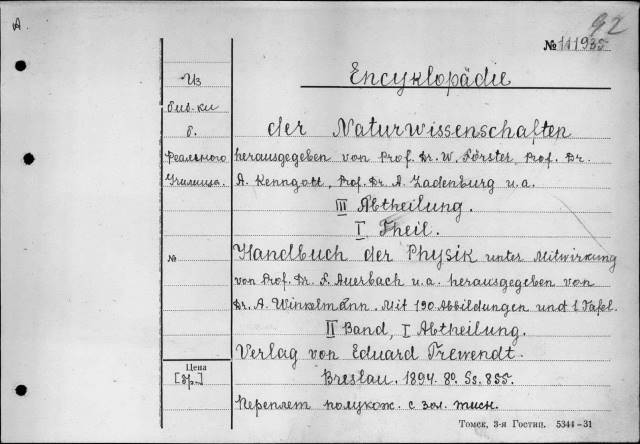 A.
92
№ 141935
Из
биб-ки
б.
Реального
Училища.
№
Цена
[др.]
Encyklopädie
der Naturwissenschaften
herausgegeben von Prof. Dr. W. Förster, Prof. Dr.
A. Kenngott, Prof. Dr. A. Ladenburg u. a.
III Abtheilung.
I Theil.
Handbuch der Physik unter Mitwirkung
von Prof. Dr. F. Auerbach u. a. herausgegeben von
Dr. A. Winkelmann. Mit 190 Abbildungen und 1 Tafel.
II Band, I Abtheilung.
Verlag von Eduard Trewendt.
Breslau. 1894. 8º. Ss. 855.
Переплет полукож. с зол. тисн.
Томск, 3-я Гостип. 5344-31